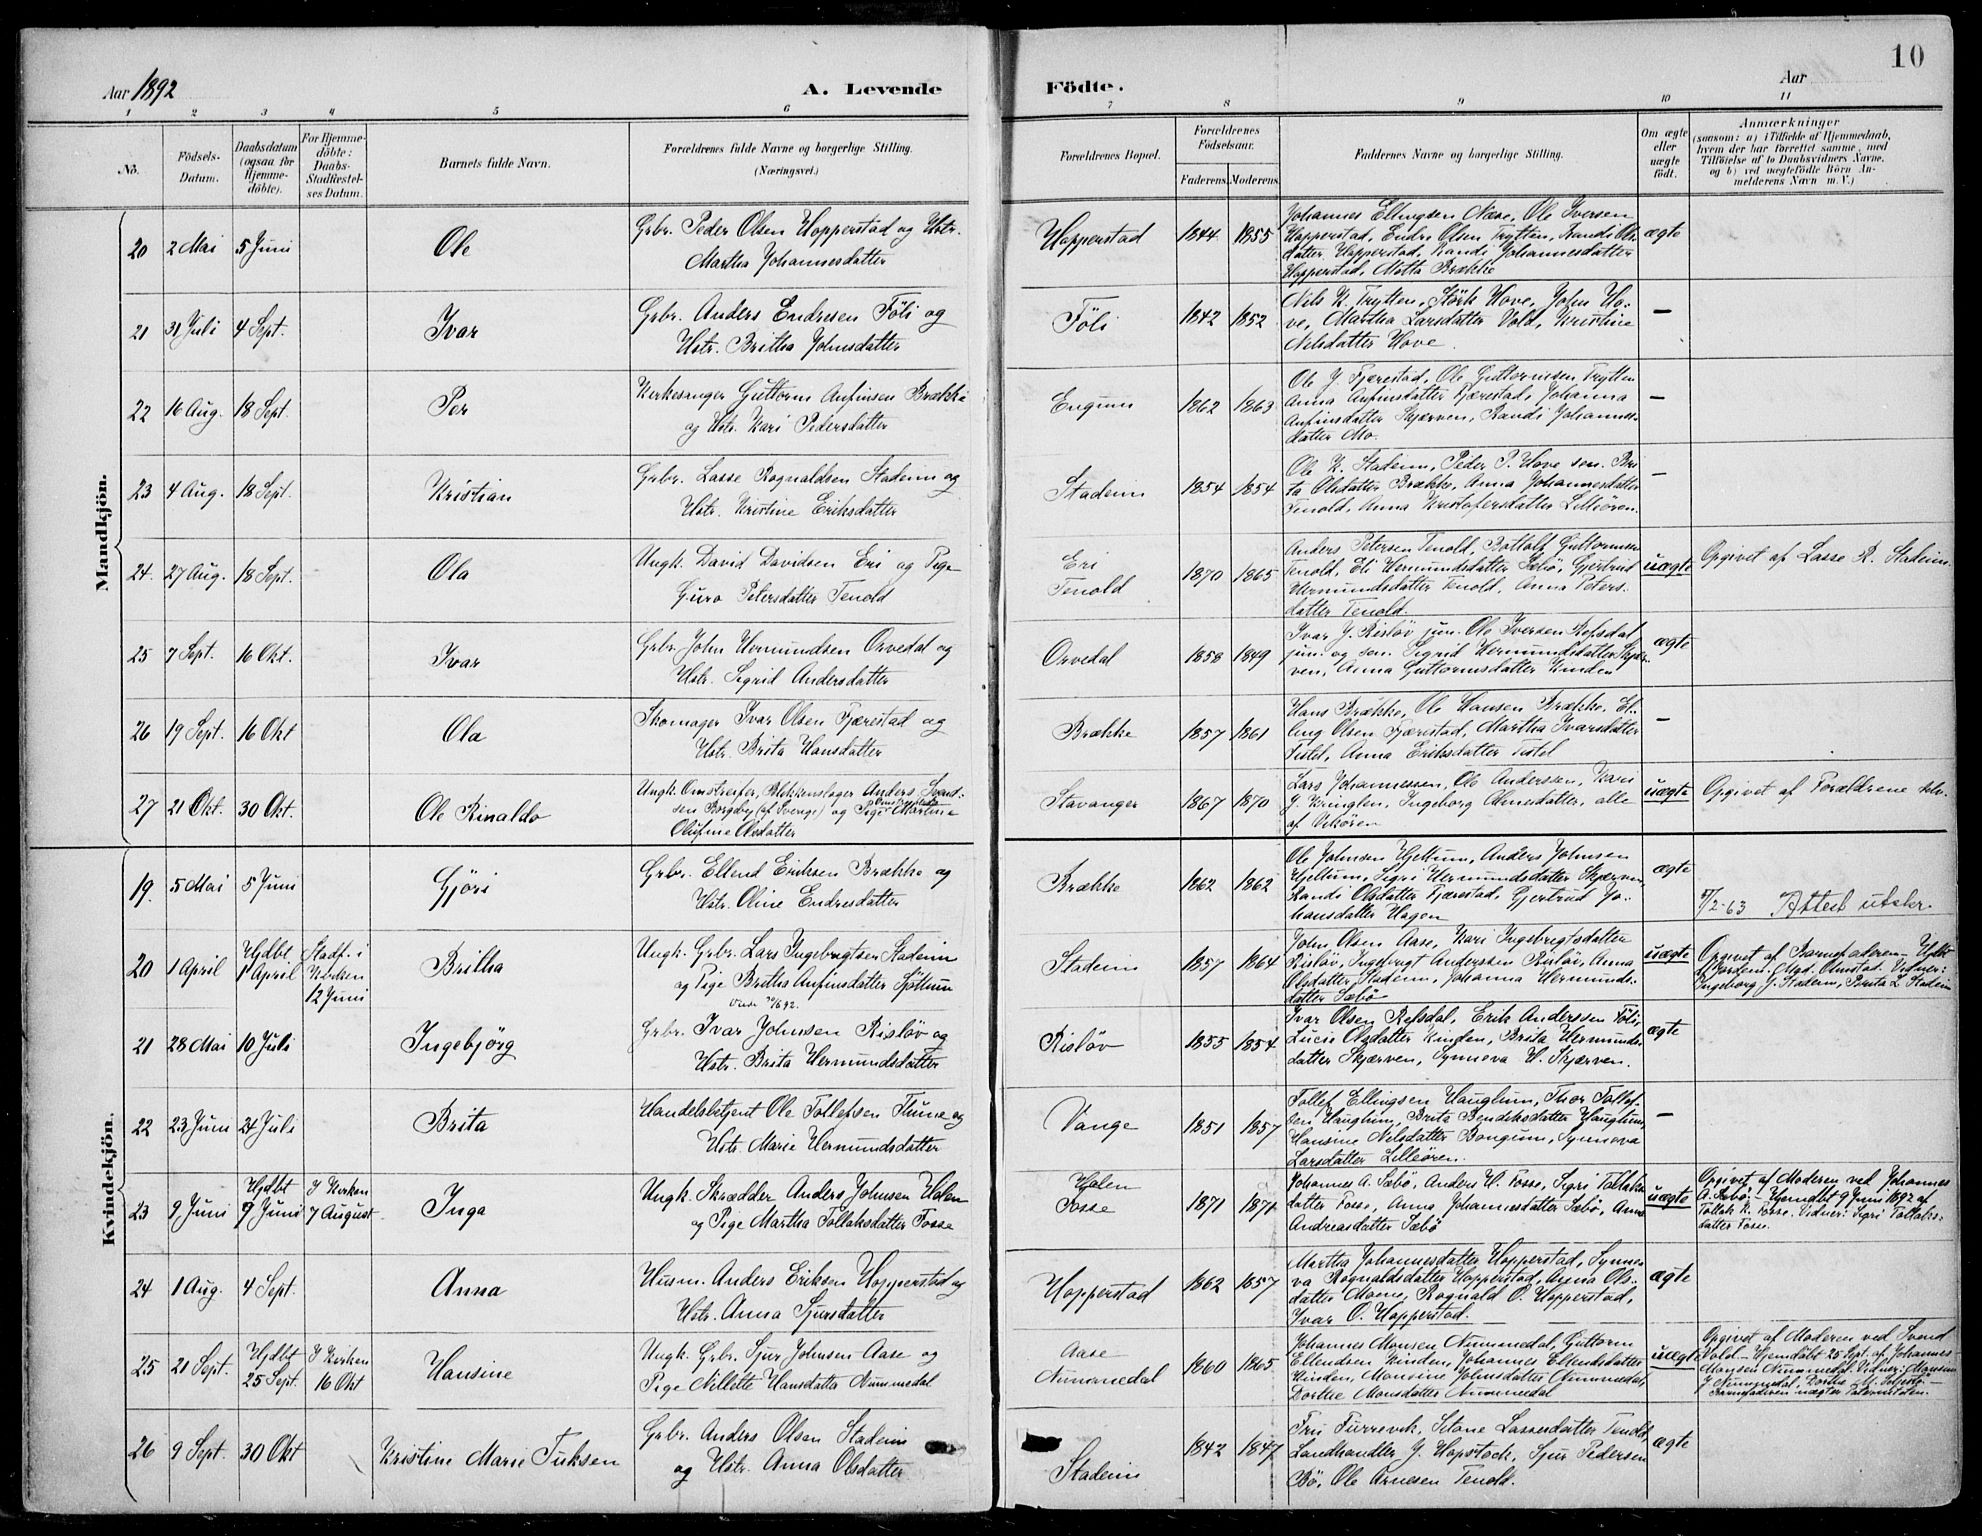 Aar 1892
A. Levende
Födte.
Aar
10
1 2 3 4 5 6 7 8 9 10 11
No.
Födsels-
Datum.
Daabsdatum
(ogsaa för
Hjemme-
döbte).
For Hjemme-
döbte:
Daabs-
Stadfæstel-
ses Datum.
Barnets fulde Navn.
Forældrenes fulde Navne og borgerlige Stilling.
(Næringsvei.)
Forældrenes Bopæl.
Forældrenes
Födselsaar.
Faderens. Moderens.
Faddernes Navne og borgerlige Stilling.
Om ægte
eller
uægte
födt.
Anmærkninger
(saasom: a) i Tilfælde af Hjemmedaab,
hvem der har forrettet samme, med
Tilföielse af to Daabsvidners Navne,
og b) ved uægtefödte Börn An-
melderens Navn m. V.)
Mandkjön.
20 2 Mai 5 Juni Ole
Grbr. Peder Olsen Hopperstad og Hstr.
Martha Johannesdatter
Hopperstad 1844. 1855
Johannes Ellingsen Næse, Ole Iversen
Hopperstad, Endre Olsen Trytten, Randi Ols-
datter Hopperstad, Randi Johannesdatter
Hopperstad, Mitta Brække
ægte
21 31 Juli 4 Sept. Ivar
Grbr. Anders Endresen Föli og
Hstr. Britha Johnsdatter
Föli 1842 1852
Nils K. Trytten, Störk Hove, John Ho-
ve, Martha Larsdatter Vold, Kristine
Nilsdatter Hove.
—
22 16 Aug. 18 Sept. Per
Kirkesanger Guttorm Anfinsen Brække
og Hstr. Kari Pedersdatter
Engum 1862 1863
Ole J. Fjærestad, Ole Guttormsen Trytten
Anna Anfinsdatter Fjærestad, Johanna
Anfinsdatter Skjærven, Randi Johannes-
datter Mo.
—
23 4 Aug. 18 Sept. Kristian
Grbr. Lasse Rognaldsen Stadeim og
Hstr. Kristine Eriksdatter
Stadeim 1854 1854
Ole K. Stadeim, Peder P. Hove sen. Bri-
ta Olsdatter Brække, Anna Johannesdatter
Tenold, Anna Kristofersdatter Lilleören.
—
24. 27 Aug. 18 Sept. Ola
Ungk. David Davidsen Eri og Pige
Guro Petersdatter Tenold
Eri
Tenold 1870 1865
Anders Petersen Tenold, Bottolf Guttormsen
Tenold, Eli Hermundsdatter Sæbö, Gjertrud
Hermundsdatter Tenold, Anna Peters-
datter Tenold.
uægte
Opgivet af Lasse R. Stadeim.
25 7 Sept. 16 Okt. Ivar
Grbr. John Hermundsen Orvedal og
Hstr. Sigrid Andersdatter
Orvedal 1858 1849
Ivar J. Rislöv jun. Ole Iversen Refsdal
jun. og sen. Sigrid Hermundsdatter Skjær-
ven, Anna Guttormsdatter Kinden
ægte
26 19 Sept. 16 Okt Ola
Skomager Ivar Olsen Fjærestad og
Hstr. Brita Hansdatter
Brække 1857 1861
Hans Brække, Ole Hansen Brække, El-
ling Olsen Fjærestad, Martha Ivarsdatter
Tistel, Anna Eriksdatter Tistel
—
27 21 Okt. 30 Okt. Ole Rinaldo
Ungk. Omstreifer, Blikkenslager Anders Svend-
sen Borgbeg (af Sverige) og Pige Martine
Olufine Olsdatter
Stavanger 1867 1870
Lars Johannessen, Ole Anderssen, Kari
J. Kringlen, Ingeborg Olinesdatter, alle
af Vikören
uægte
Opgivet af Forældrene selv.
Kvindekjön.
19. 5 Mai 5 Juni Gjöri
Grbr. Ellend Eriksen Brække og
Hstr. Oline Endresdatter
Brække 1862 1862
Ole Johnsen Hjeltum, Anders Johnsen
Hjeltum, Sigri Hermundsdatter Skjærven,
Randi Olsdatter Fjærestad, Gjertrud Jo-
hansdatter Hagen
ægte
7/2-63 Attest utskr.
20 1 April Hjdbt. 1 April Stadf. i
Kirken
12 Juni Britha
Ungk. Grbr. Lars Ingebrigtsen Stadeim
og Pige Britha Anfinsdatter Sjöttun
Stadeim 1857 1864
John Olsen Aase, Kari Ingebrigtsdatter
Rislöv, Ingebrigt Anderssen Rislöv, Anna
Olsdatter Stadeim, Johanna Hermunds-
datter Sæbö
uægte
Opgivet af Barnefaderen – Hjdbt
af Jordem. Mgd. Olmstad. Vidner:
Ingeborg J. Stadeim, Brita L. Stadeim
21 28 Mai 10 Juli Ingebjörg
Grbr. Ivar Johnsen Rislöv og
Hstr. Brita Hermundsdatter
Rislöv 1855 1854
Ivar Olsen Refsdal, Erik Anderssen Föli,
Lucie Olsdatter Kinden, Brita Hermunds-
datter Skjærven, Synneva H. Skjærven.
ægte
22 23 Juni 24 Juli Brita
Handelsbetjent Ole Tollefsen Thune og
Hstr. Marie Hermundsdatter
Vange 1851 1857
Tollef Ellingsen Hauglum, Thor Tollef-
sen Hauglum, Brita Bendiksdatter Hauglum,
Hansine Nilsdatter Bongum, Synneva
Larsdatter Lilleören.
—
23 9 Juni Hjdbt 9 Juni I Kirken
7 August Inga
Ungk. Skrædder Anders Johnsen Holen
og Pige Martha Tollaksdatter Fosse
Holen
Fosse 1871 1871
Johannes A. Sæbö, Anders H. Fosse, Sigri Tollaks-
datter Fosse, Anna Johannesdatter Sæbö, Anna
Andreasdatter Sæbö
uægte
Opgivet af Moderen ved Johannes
A. Sæbö – Hjemdöbt 9 Juni 1892 af
Tollak K. Fosse. Vidner: Sigri Tollaks-
datter Fosse.
24 1 Aug. 4 Sept. Anna
Husm. Anders Eriksen Hopperstad og
Hstr. Anna Sjursdatter
Hopperstad 1862 1857
Martha Johannesdatter Hopperstad, Synne-
va Rognaldsdatter Hopperstad, Anna Ols-
datter Moene, Rognald O. Hopperstad,
Ivar O. Hopperstad.
ægte
25 21 Sept. Hjdbt 25 Sept. I Kirken
16 Okt Hansine
Ungk. Grbr. Sjur Johnsen Aase og
Pige Nillette Hansdatter Nummedal
Aase
Nummedal 1860 1865
Johannes Monsen Nummedal, Guttorm
Ellendsen Kinden, Johannes Ellendsdatter
Kinden, Monsine Johnsdatter Nummedal,
Dorthe Monsdatter Nummedal
uægte
Opgivet af Moderen ved Svend
Vold – Hjemdöbt 25 Sept. af Johannes
Monsen Nummedal. Vidner: Monsine
J. Nummedal, Dorthe M.
Barnefaderen nægter Paterniteten.
26 9 Sept. 30 Okt Kristine Marie Tuksen
Grbr. Anders Olsen Stadeim
og Hstr. Anna Olsdatter
Stadeim 1842 1847
Fru Furrevik, Sitane Lassesdatter Tenold,
Landhandler J. Hopstock, Sjur Pedersen
Bö, Ole Arnesen Tenold.
ægte